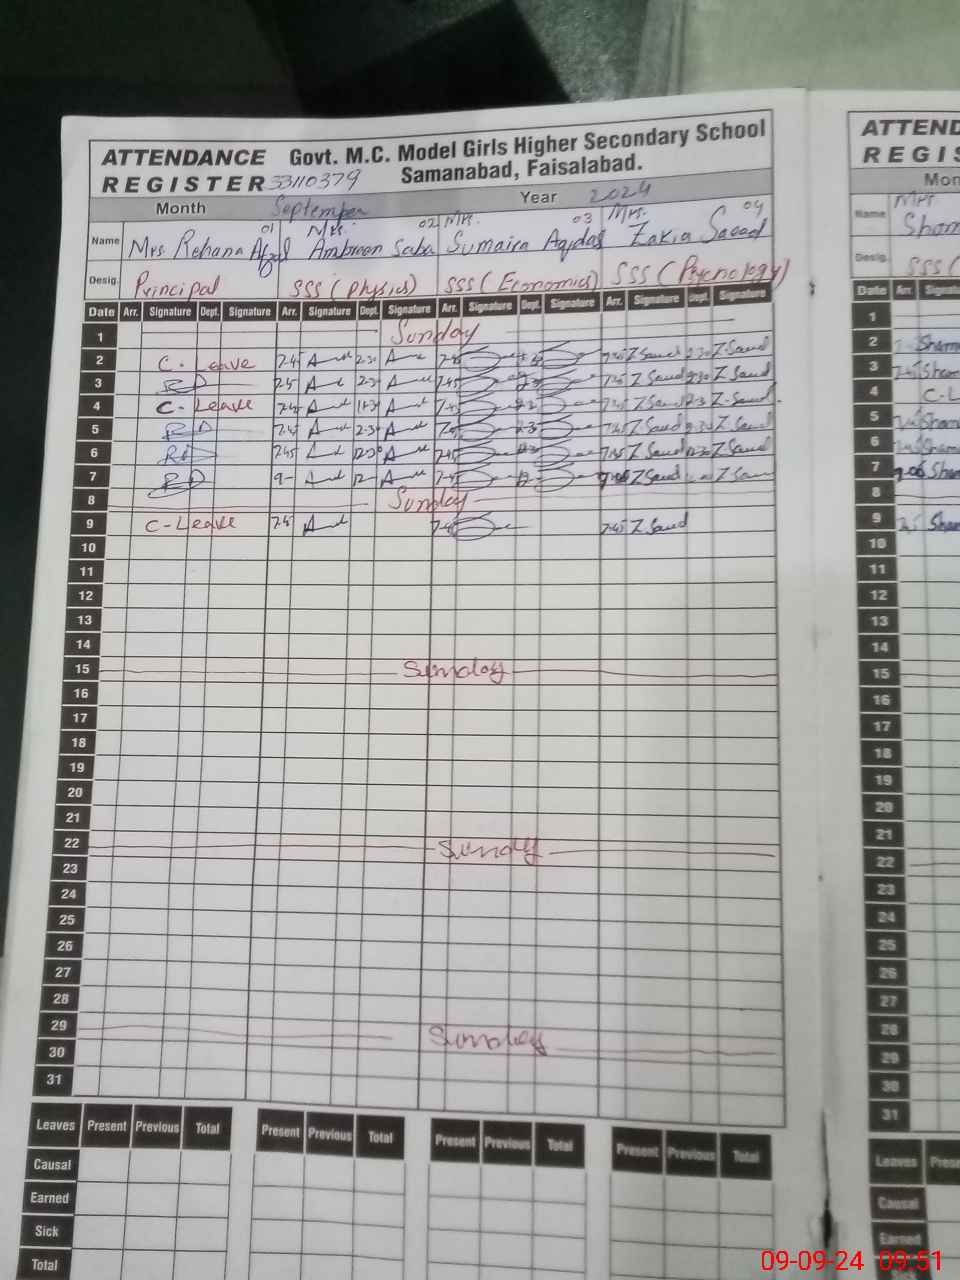 ATTENDANCE Govt. M.C. Model Girls Higher Secondary School
REGISTER 33110379 Samanabad, Faisalabad.
Month September Year 2024
Name Mrs Rehana Afzal 01 Mrs. Ambreen Saba 02 Mrs. Sumaira Aqdas 03 Mrs. Zakia Saeed 04
Desig. Principal SSS (Physics) SSS (Economics) SSS (Psychology)
Date Arr. Signature Dept. Signature Arr. Signature Dept. Signature Arr. Signature Dept. Signature Arr. Signature Dept. Signature
1 Sunday
2 C. Leave 7.45 2.30 7.45 7.45 Z Saeed 2.30 Z-Saeed
3 7.45 Z Saeed 2.30 Z Saeed
4 C- Leave 7.45 Z Saeed Z-Saeed
5 7.45 Z Saeed Z Saeed
6 7.45 7.45 7.45 Z Saeed Z Saeed
7 9- 12- Z Saeed Z Saeed
8 Sunday
9 C-Leave 7.45 7.45 7.45 Z Saeed
10
11
12
13
14
15 Sunday
16
17
18
19
20
21
22 Sunday
23
24
25
26
27
28
29 Sunday
30
31
Leaves Present Previous Total Present Previous Total Present Previous Total Present Previous Total
Causal
Earned
Sick
Total
ATTEND
REGIS
Mon
Name Mrs.
Desig. SSS (
Date Arr. Signatu
1
2 Sham
3 7.45 Sham
4 C-L
5 Sham
6 Sham
7 Sham
8
9 Sham
10
11
12
13
14
15
16
17
18
19
20
21
22
23
24
25
26
27
28
29
30
31
Leaves Prese
Causal
Earned
09-09-24 09:51